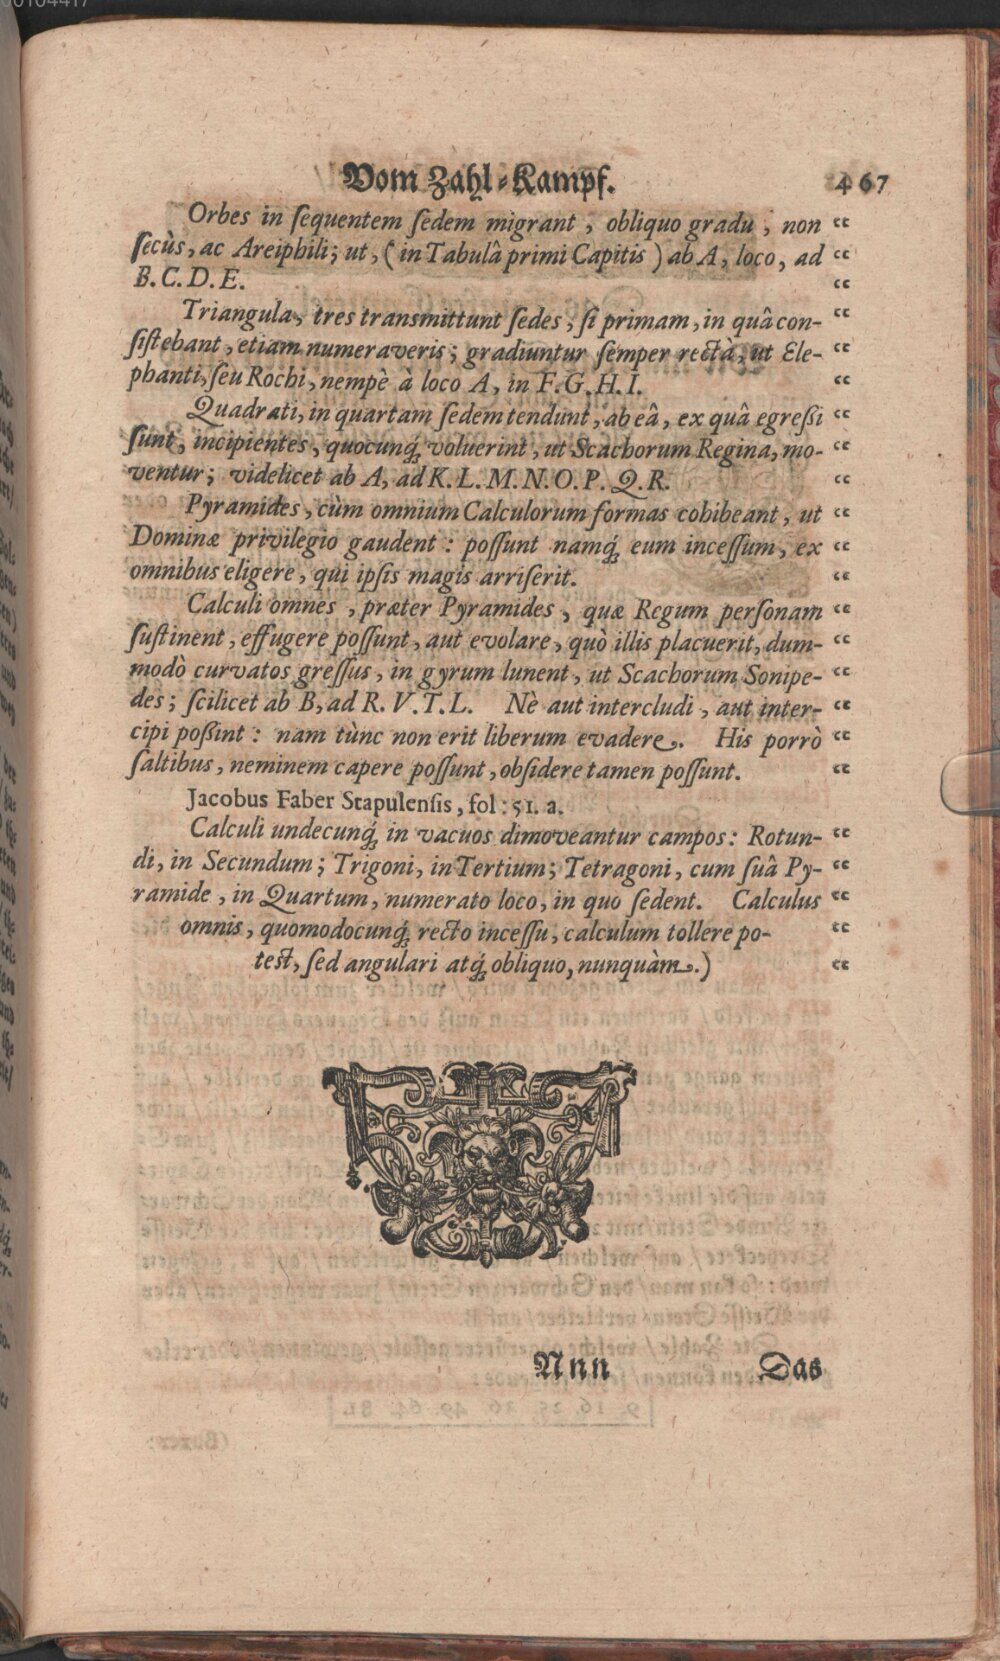 Vom Zahl-Kampf. 467
Orbes in ſequentem ſedem migrant, obliquo gradu, non “
ſecùs, ac Areiphili; ut, (in Tabulâ primi Capitis) ab A, loco, ad “
B. C. D. E. “
Triangula, tres transmittunt ſedes, ſi primam, in quâ con- “
ſiſtebant, etiam numeraveris; gradiuntur ſemper rectà, ut Ele- “
phanti, ſeu Rochi, nempè à loco A, in F. G. H. I. “
Quadrati, in quartam ſedem tendunt, ab eâ, ex quâ egreßi “
ſunt, incipientes, quocunq́; voluerint, ut Scachorum Regina, mo- “
ventur; videlicet ab A, ad K. L. M. N. O. P. Q. R. “
Pyramides, cùm omnium Calculorum formas cohibeant, ut “
Dominæ privilegio gaudent: poſſunt namq́; eum inceſſum, ex “
omnibus eligere, qui ipſis magis arriſerit. “
Calculi omnes, præter Pyramides, quæ Regum perſonam “
ſuſtinent, effugere poſſunt, aut evolare, quò illis placuerit, dum- “
modò curvatos greſſus, in gyrum lunent, ut Scachorum Sonipe- “
des; ſcilicet ab B, ad R. V. T. L. Nè aut intercludi, aut inter- “
cipi poßint: nam tùnc non erit liberum evadere. His porrò “
ſaltibus, neminem capere poſſunt, obſidere tamen poſſunt. “
Jacobus Faber Stapulenſis, fol: 51. a.
Calculi undecunq́; in vacuos dimoveantur campos: Rotun- “
di, in Secundum; Trigoni, in Tertium; Tetragoni, cum ſuâ Py- “
ramide, in Quartum, numerato loco, in quo ſedent. Calculus “
omnis, quomodocunq́; recto inceſſu, calculum tollere po- “
teſt, ſed angulari atq́; obliquo, nunquàm.) “
Nnn Das